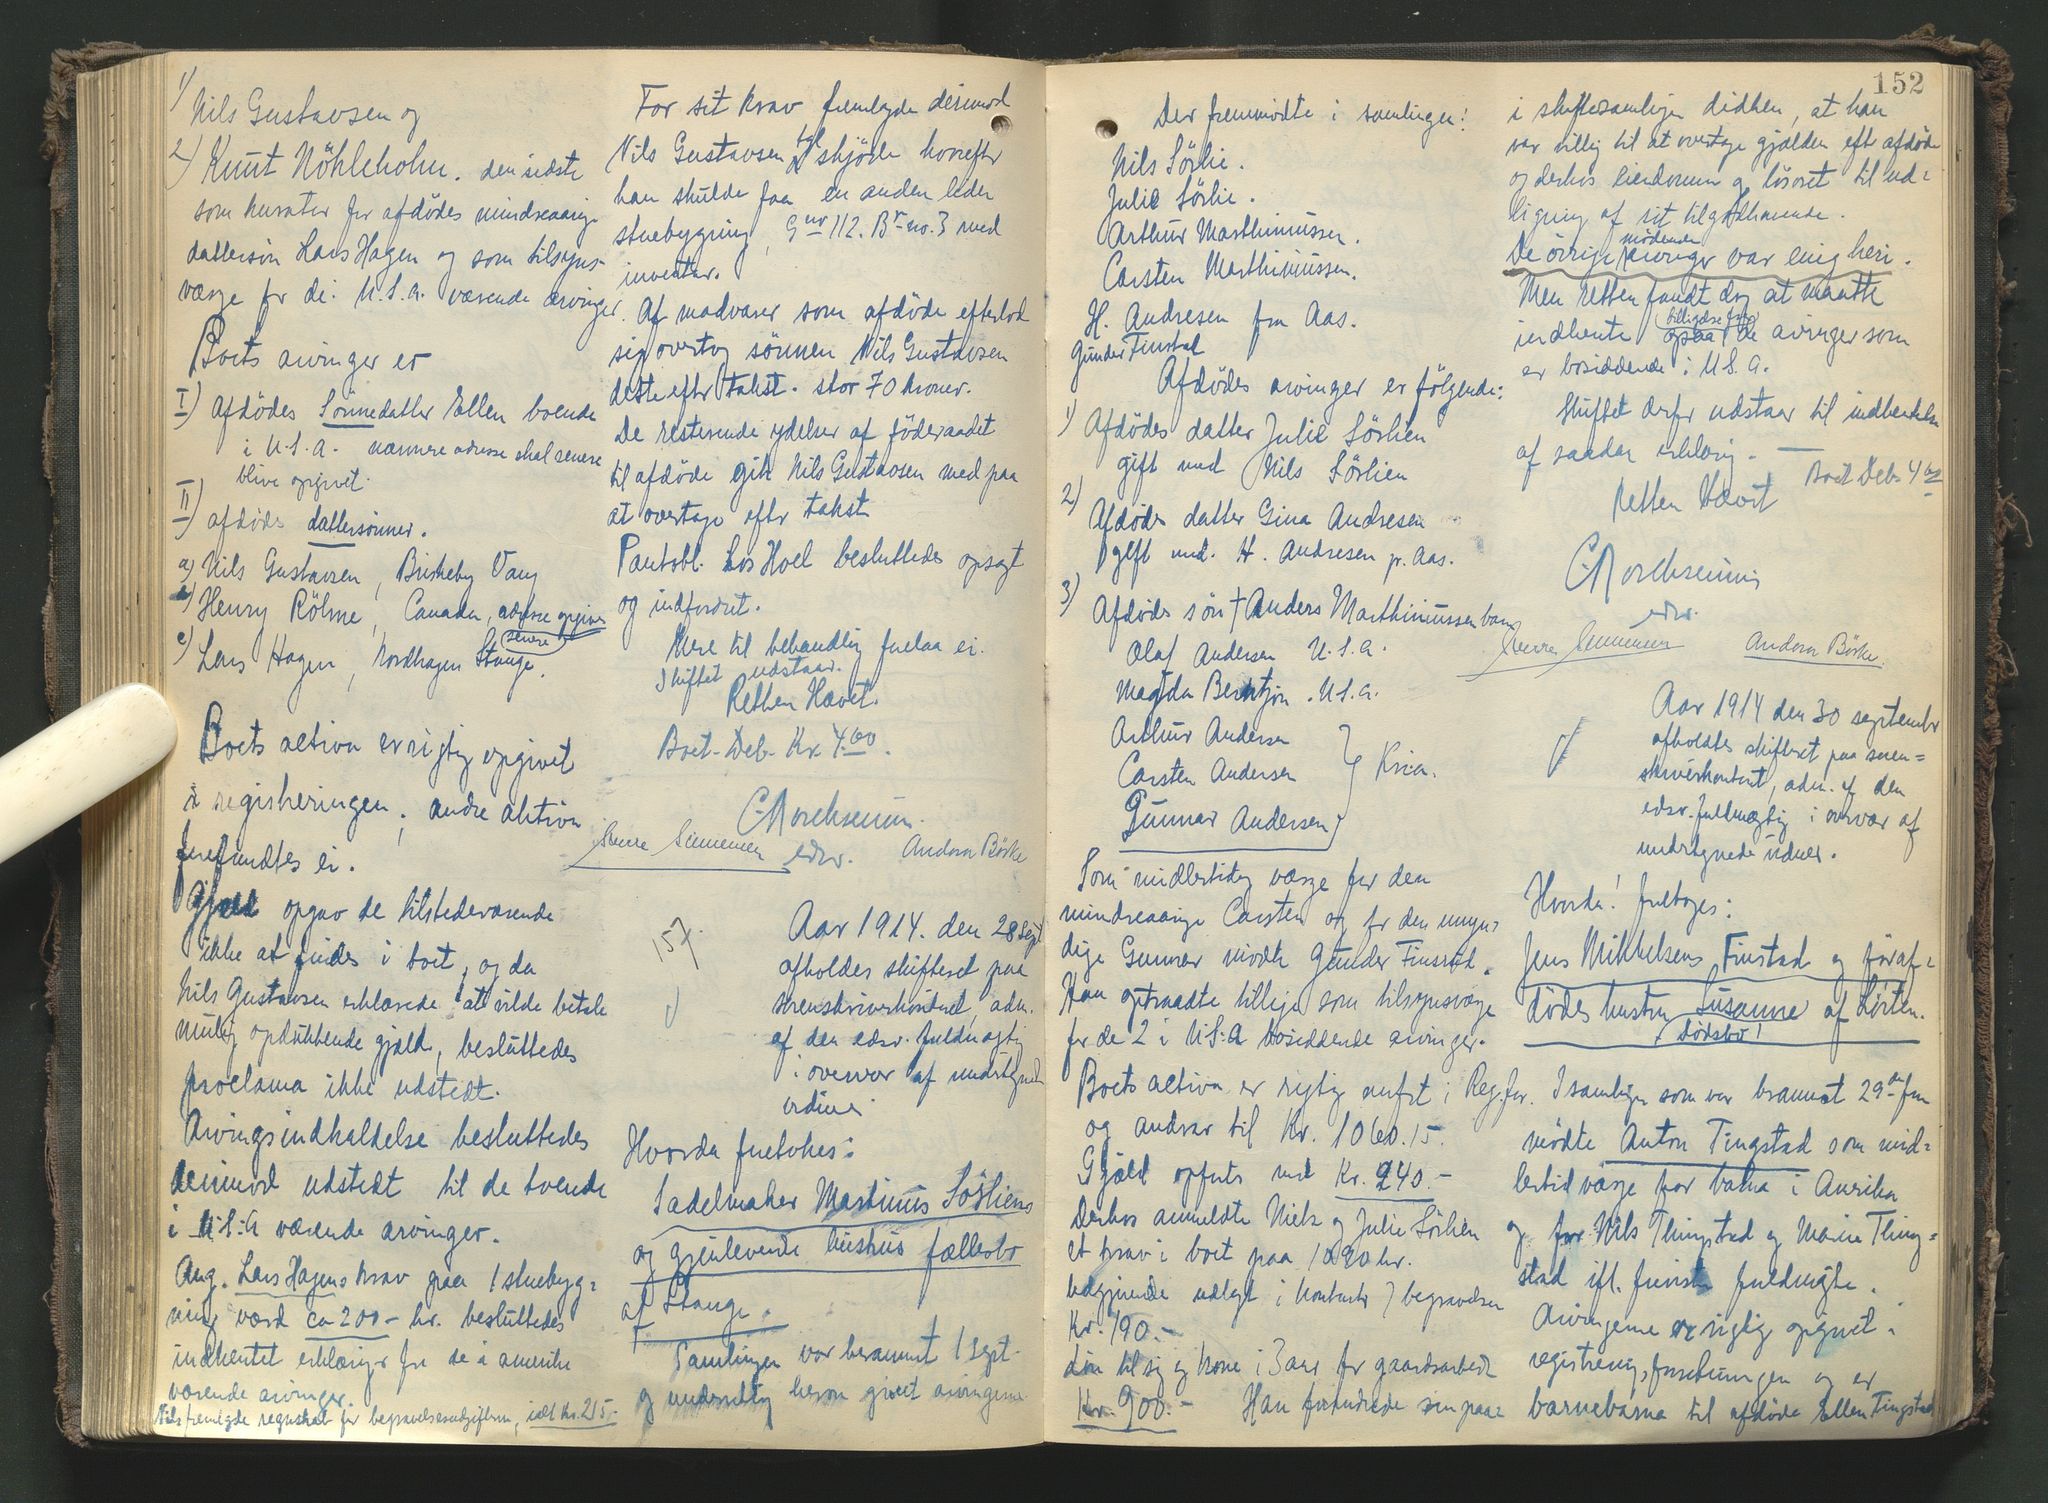 1) Nils Gustavsen og
2) Knut Nöhleholm. den sidste
som kurator for afdödes mindreaarige
dattersön Lars Hagen og som tilsyns-
værge for de i U.S.A. værende arvinger.
Boets arvinger er
I) Afdödes Sönnedatter Ellen boende
i U.S.A. nærmere adresse skal senere
blive opgivet.
II) afdödes dattersönner.
a) Nils Gustavsen, Briskeby Vang
b) Henry Röhne, Canada, adresse opgives
senere
c) Lars Hagen, Nordhagen Stange.
Boets aktiva er rigtig opgivet
i registreringen, andre aktiva
forefandtes ei.
Gjæld opgav de tilstedeværende
ikke at findes i boet, og da
Nils Gustavsen erklærede at vilde betale
mulig opdukkende gjæld, besluttedes
proclama ikke udstedt.
Arvingsindkaldelse besluttedes
derimod udstedt til de boende
i U.S.A værende arvinger.
Ang. Lars Hagens krav paa 1 stuebyg-
ning værd ca 200- kr. besluttedes
indhentet erklæring fra de i amerika
værende arvinger.
Nils fremlagde regnskab for begravelsesudgifterne, ialt kr. 215.-
For sit krav fremlagde derimod
Nils Gustavsen tgl skjöde hvorefter
han skulde faa en anden liden
stuebygning, Gno 112. Br.no. 3 med
inventar.
Af madvarer som afdöde efterlod
sig overtog sönnen Nils Gustavsen
dette efter takst. stor 70 kroner.
De resterende ydelser af föderaadet
til afdöde gik Nils Gustavsen med paa
at overtage efter takst
Pantobl. hos Hoel besluttedes opsagt
og indfordret.
Mere til behandling forelaa ei.
Skiftet udstaar.
Retten Hævet.
Boet-Deb. Kr. 4.00.
edsv.
Andora Börke
157.
Aar 1914. den 28 sept
afholdes skifteret paa
sorenskriverkontoret, adm.
af den edsv. fuldmægtig
i overvær af undertegnede
vidner
Hvorda foretokes:
Sadelmaker Martinus Sörliens
og gjenlevende hustrus fællesbo
af Stange.
Samlingen var berammet 1 sept.
og underretning herom givet arvingerne
152
Der fremmödte i samlingen:
Nils Sörlie.
Julie Sörlie.
Arthur Marthinussen.
Carsten Marthinussen.
H. Andresen fra Aas.
Gunder Finstad
Afdödes arvinger er fölgende:
1) Afdödes datter Julie Sörlien
gift med Nils Sörlien
2) Afdödes datter Gina Andresen
gift med. H. Andresen pr. Aas.
3) Afdödes sön † Anders Marthinussen barn
Olaf Andersen U.S.A.
Magda Berntzon. U.S.A.
Arthur Andersen
Carsten Andersen } Kria.
Gunnar Andersen
Som midlertidig værge for den
mindreaarige Carsten og for den umyn-
dige Gunnar mödte Gunder Finstad.
Han optraadte tillige som tilsynsværge
for de 2 i U.S.A bosiddende arvinger.
Boets aktiva er rigtig anfört i Reg.for.
og andrar til Kr. 1060.15.
Gjæld opförtes med Kr. 240.-
Derhos anmeldte Niels og Julie Sörlien
et krav i boet paa 1090 kr.
udlagt i kontanter begravelsen
Kr. 190.-
lön til sig og kone i 3 aar for gaardsarbeide
Kr. 900.- Han forandrede sin paa-
i skiftesamlingen didhen, at han
var villig til at overtage gjælden efter afdöde
og derhos eiendommen og lösöret til ud-
ligning af sit tilgodehavende.
De övrige mödende arvinger var enig heri.
Men retten fandt dog at maatte
indhente tilligelse fra de arvinger som
er bosiddende i U.S.A.
Skiftet derfor udstaar til indhentelse
af saadan erklæring. —
Boet Deb 4.00
Retten Hævet
edsv.
Andora Börke.
Aar 1914 den 30 september
afholdtes skifteret paa soren-
skriverkontoret, adm. af den
edsv. fuldmægtig i overvær af
undertegnede vidner.
Hvorda! foretoges:
Jens Mikkelsens Finstad ogföraf-
dödes hustru Susanne af Löiten.
Dödsbo!
I samlingen som var berammet 29de fm
mödte Anton Tingstad som mid-
lertid værge for barna i Amerika
og for Nils Thingstad og Marie Thing-
stad ifl. fuldmagt.
Arvingerne er rigtig opgivet i
registreringsforretningen og er
barnebarna til afdöde Ellen Tingstad